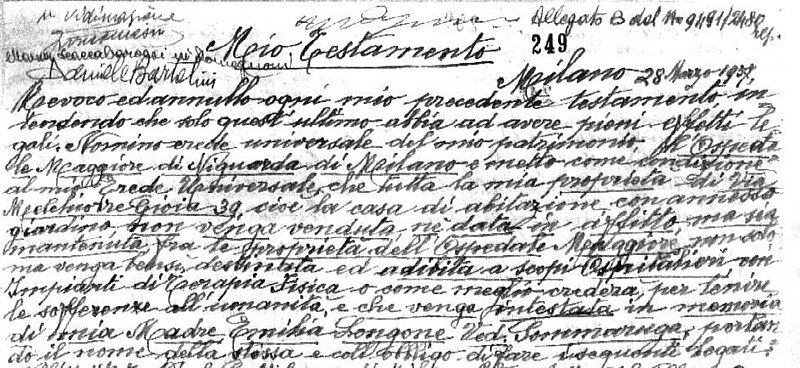 Allegato B del N° 9491/2480
rep.
Daniele Bartolini
Mio Testamento
249
Milano 28 Marzo 1957
Revoco ed annullo ogni mio precedente testamento, in
tendendo che solo quest'ultimo abbia ad avere pieni effetti le
gali. Nomino erede universale del mio patrimonio, l'Ospeda
le Maggiore di Niguarda di Milano e metto come condizione
al mio Erede Universale, che tutta la mia proprietà di Via
Melchiorre Gioia 39, cioè la casa di abitazione con annesso
giardino, non venga venduta, nè data in affitto, ma sia
mantenuta, fra le proprietà dell'Ospedale Maggiore, non solo
ma venga bensì destinata ed adibita a scopi Ospitalieri con
Impianti di Terapia Fisica o come meglio crederà, per lenire
le sofferenze all'umanità, e che venga intestata in memoria
di mia Madre Emilia Longone Ved. Sommaruga, portan
do il nome della stessa e coll'obbligo di fare i seguenti legati: